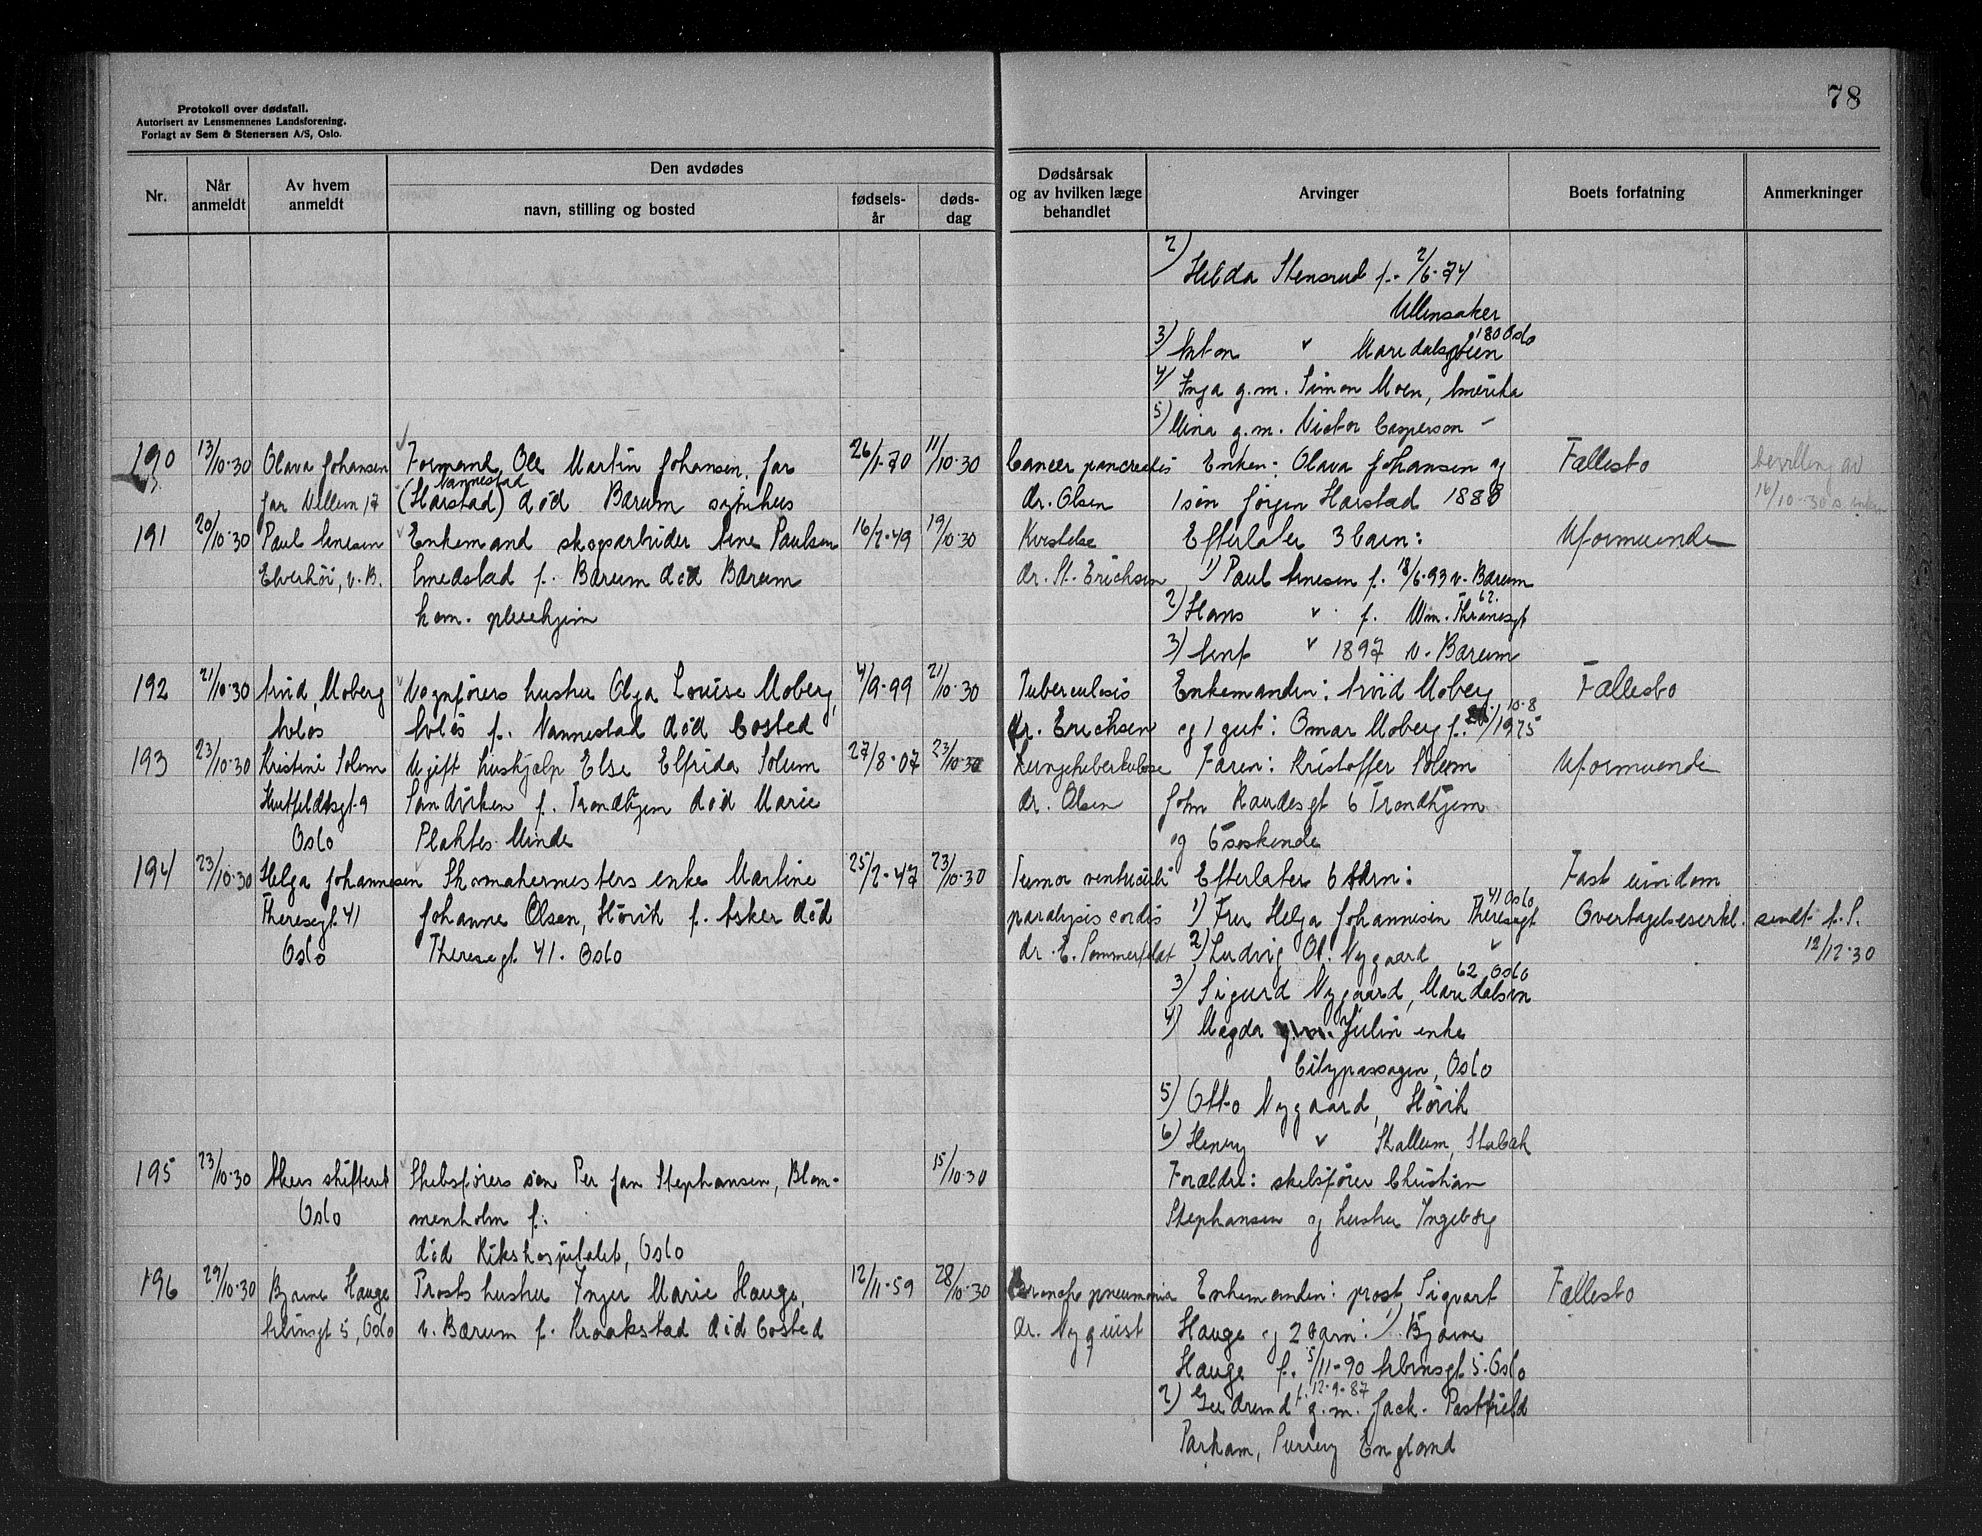 78
Protokoll over dødsfall.
Autorisert av Lensmennenes Landsforening.
Forlagt av Sem & Stenersen A/S, Oslo.
Nr.
Når anmeldt
Av hvem anmeldt
Den avdødes
navn, stilling og bosted
fødsels-år
døds-dag
Dødsårsak og av hvilken læge behandlet
Arvinger
Boets forfatning
Anmerkninger
2) Hilda Stensrud f. 2/6-74
Ullensaker
3) Anton " Maridalsveien 180 Oslo
4) Inga g.m. Simon Moen, Amerika
5) Mina g.m. Victor Casperson -
190 13/10-30 Olava Johansen Formand Ole Martin Johansen, Jar 26/1-70 11/10-30 Cancer pancreatis Enken: Olava Johansen og Fællesbo bevilling av
Jar Vellem 17 (Harstad) Nannestad død Bærum sykehus dr. Olsen 1 søn Jørgen Harstad 1888 16/10-30 s. enken
191 20/10-30 Paul Arnesen Enkemand skogsarbeider Arne Paulsen 16/2-49 19/10-30 Kreftelse Efterlater 3 barn: Uformuende
Elverhøi, v. B. Smedstad f. Bærum død Bærum dr. St. Erichsen 1) Paul Arnesen f. 18/6-93 v. Bærum
kom. pleiehjem 2) Hans " f. Wm. Thranesgt 62.
3) Arnt " 1897 v. Bærum
192 21/10-30 Arvid Moberg Vognførers hustru Olga Louise Moberg, 4/9-99 21/10-30 Tuberculosis Enkemanden: Arvid Moberg Fællesbo
Avløs Avløs f. Nannestad død bosted dr. Erichsen og 1 gut: Omar Moberg f. 10-8 /1925
193 23/10-30 Kristine Solum Ugift hushjælp Else Elfrida Solum 27/8-07 23/10-30 Lungetuberkulose Faren: Kristoffer Solum Uformuende
Huitfeldtsgt. 9 Sandviken f. Trondhjem død Marie dr. Olsen John Raudesgt 6 Trondhjem
Oslo Plahtes Minde og 6 søskende
194 23/10-30 Helga Johannesen Skomakermesters enke Martine 25/2-47 23/10-30 Tumor ventriculi Efterlater 6 barn: Fast eiendom
Theresegt. 41 Johanne Olsen, Høvik f. Asker død paralysis cordis 1) Fru Helga Johannesen Theresegt 41 Oslo Overtagelseserkl. sendt f. S.
Oslo Theresegt 41. Oslo dr. E. Sommerfeldt 2) Ludvig Ol. Nygaard " 12/12-30
3) Sigurd Nygaard, Maridalsvn 62 Oslo
4) Magda g.m. Julin enke
Citypassagen, Oslo
5) Otto Nygaard, Høvik
6) Henry " Skallum, Stabæk
195 23/10-30 Akers skifterett Skibsførers søn Per Jan Stephansen, Blom- 15/10-30 Forældre: skibsfører Christian
Oslo menholm f. Stephansen og hustru Ingeborg
død Rikshospitalet, Oslo
196 29/10-30 Bjarne Hauge Prosts hustru Inger Marie Hauge, 12/11-59 28/10-30 Broncho pneumonia Enkemanden: prost Sigvart Fællesbo
Arbinsgt 5, Oslo v. Bærum f. Kraakstad død bosted dr. Nyquist Hauge og 2 barn: 1) Bjarne
Hauge f. 5/11-90 Arbinsgt 5. Oslo
2) Gudrund f. 12-9-87 g.m. Jack. Pastfield
Parham, Surrey England